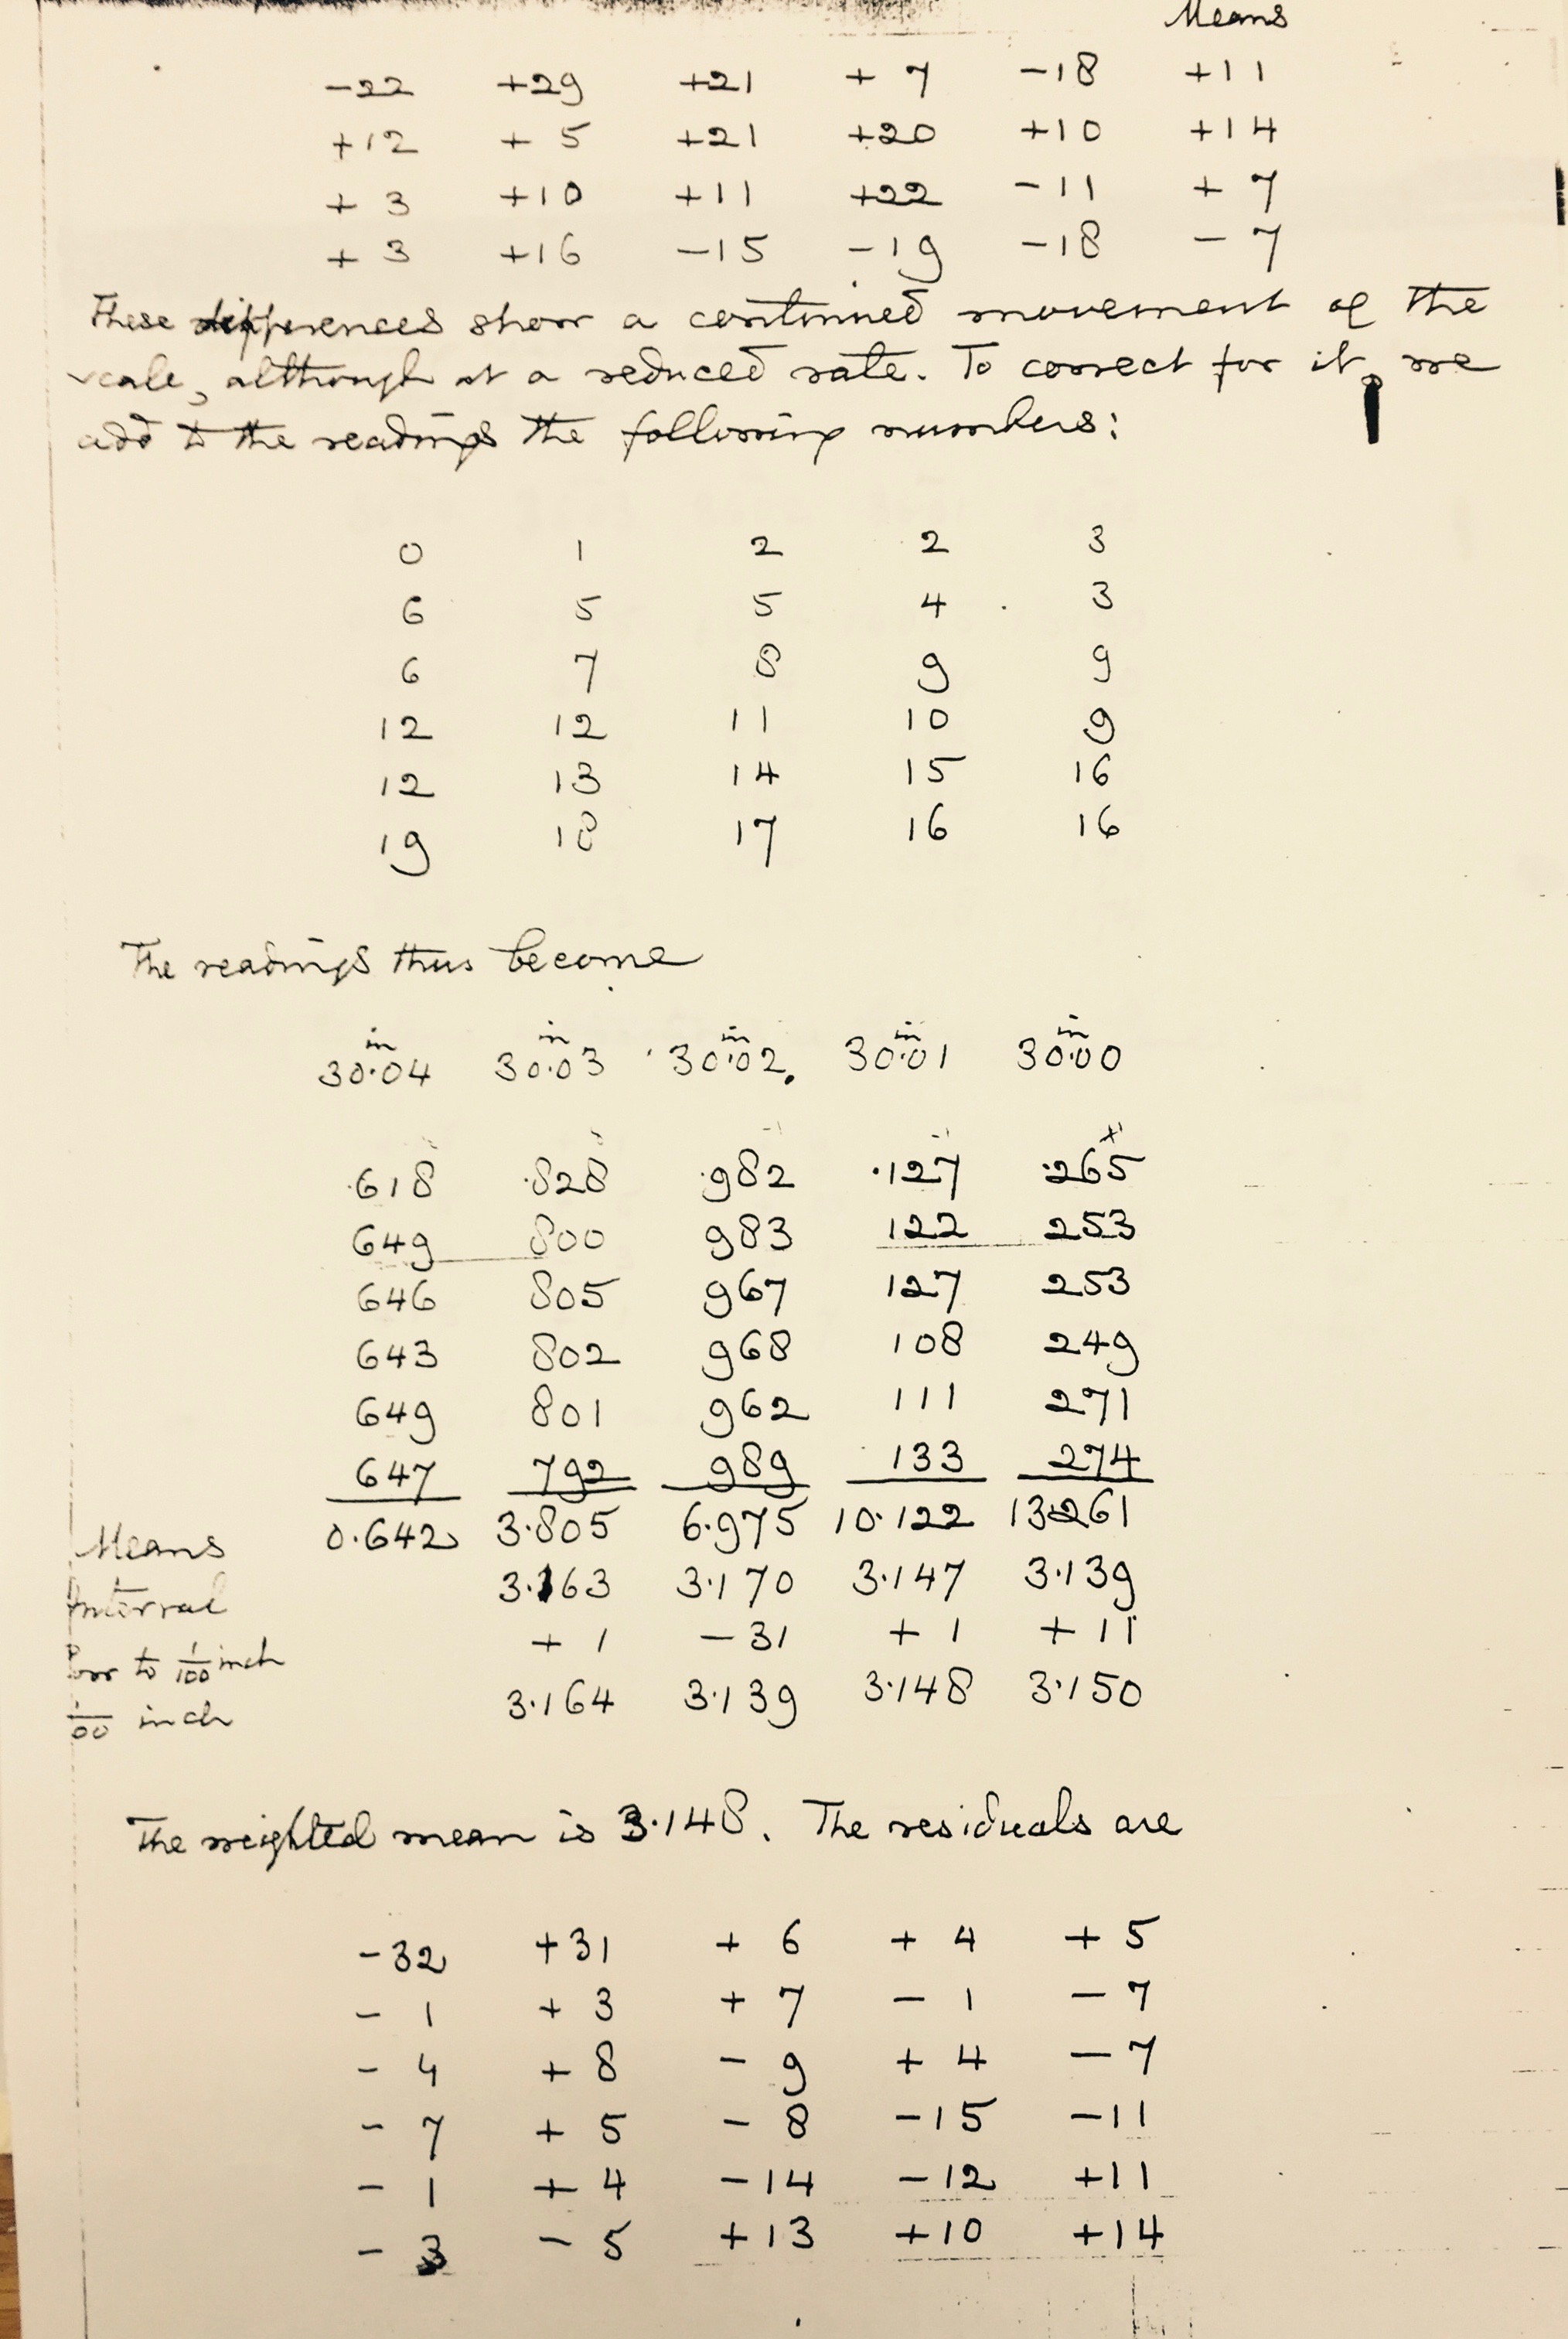 Means
-22 +29 +21 + 7 -18 +11
+12 + 5 +21 +20 +10 +14
+ 3 +10 +11 +22 -11 + 7
+ 3 +16 -15 -19 -18 - 7
These differences show a continued movement of the
scale, although at a reduced rate. To correct for it, we
add to the readings the following numbers:
0 1 2 2 3
6 5 5 4 3
6 7 8 9 9
12 12 11 10 9
12 13 14 15 16
19 18 17 16 16
The readings thus become
in in in in in
30.04 30.03 30.02. 30.01 30.00
.618 .828 .982 .127 .265
649 800 983 122 253
646 805 967 127 253
643 802 968 108 249
649 801 962 111 271
647 792 989 133 274
Means 0.642 3.805 6.975 10.122 13.261
Interval 3.163 3.170 3.147 3.139
Corr to 1/100 inch + 1 -31 + 1 + 11
1/100 inch 3.164 3.139 3.148 3.150
The weighted mean is 3.148. The residuals are
-32 +31 + 6 + 4 + 5
- 1 + 3 + 7 - 1 - 7
- 4 + 8 - 9 + 4 - 7
- 7 + 5 - 8 -15 -11
- 1 + 4 -14 -12 +11
- 3 - 5 +13 +10 +14